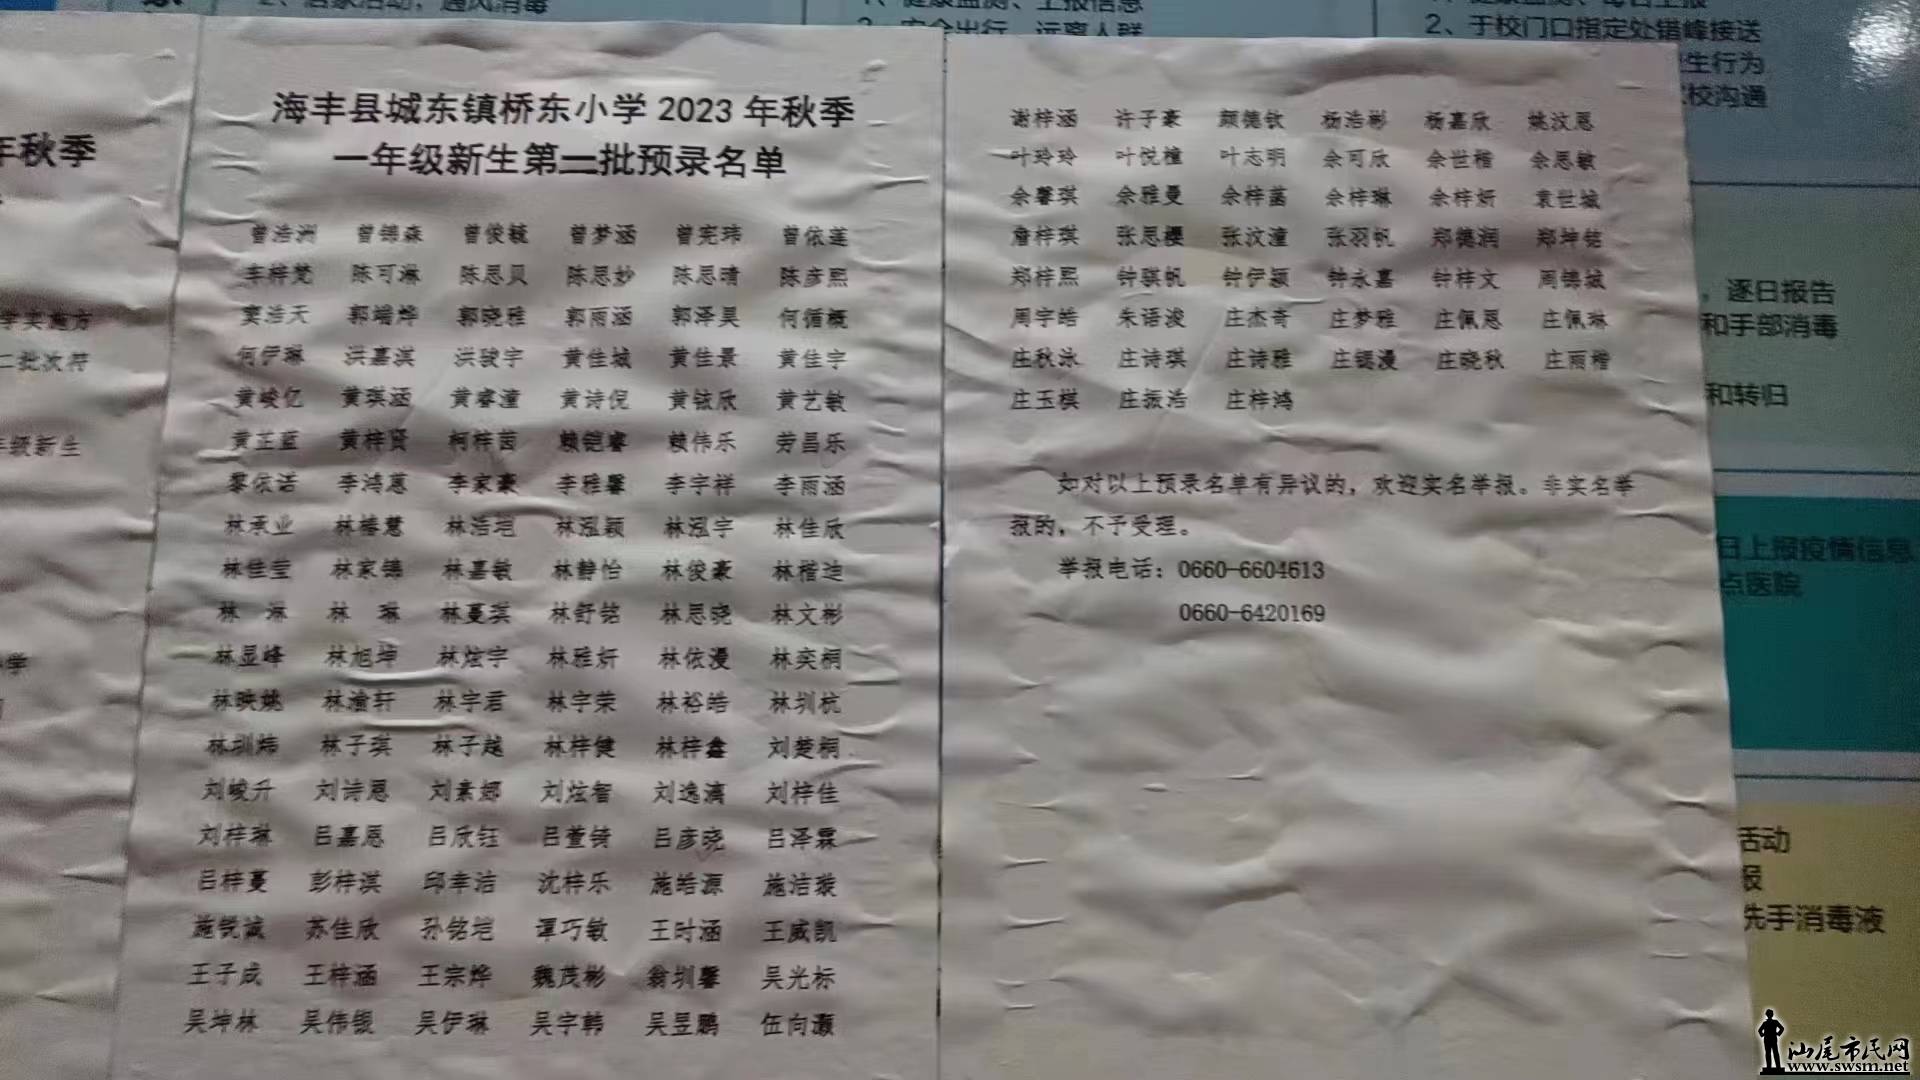 2、居家活动，通风消毒
1、健康监测、上报信息
2、安全出行、远离人群
1、健康监测、每日上报
2、于校门口指定处错峰接送
生行为
校沟通
年秋季
学实施方
二批次符
年级新生
小学
海丰县城东镇桥东小学 2023 年秋季
一年级新生第二批预录名单
曾浩洲 曾锦森 曾俊毓 曾梦涵 曾宪玮 曾依莲
车梓梵 陈可淋 陈思贝 陈思妙 陈思晴 陈彦熙
窦浩天 郭端烨 郭晓雅 郭雨涵 郭泽昊 何循概
何伊琳 洪嘉淇 洪骏宇 黄佳城 黄佳景 黄佳宇
黄峻亿 黄琪涵 黄睿潼 黄诗倪 黄铉欣 黄艺敏
黄芷蓝 黄梓贤 柯梓茵 赖铠睿 赖伟乐 劳昌乐
黎依诺 李鸿蒽 李家豪 李雅馨 李宇祥 李雨涵
林承业 林椿慧 林浩垲 林泓颖 林泓宇 林佳欣
林佳莹 林家锦 林嘉敏 林静怡 林俊豪 林楷迪
林 淋 林 琳 林蔓琪 林舒铭 林思晓 林文彬
林显峰 林旭坤 林炫宇 林雅妍 林依漫 林奕桐
林映姚 林渝轩 林宇君 林宇荣 林裕皓 林圳杭
林圳炜 林子琪 林子越 林梓健 林梓鑫 刘楚桐
刘峻升 刘诗恩 刘素娜 刘炫智 刘逸漓 刘梓佳
刘梓琳 吕嘉恩 吕欣钰 吕萱锜 吕彦晓 吕泽霖
吕梓蔓 彭梓淇 邱幸洁 沈梓乐 施皓源 施洁璇
施锐诚 苏佳欣 孙铭垲 谭巧敏 王时涵 王威凯
王子成 王梓涵 王宗烨 魏茂彬 翁圳馨 吴光标
吴坤林 吴伟锻 吴伊琳 吴宇韩 吴昱鹏 伍向灏
谢梓涵 许子豪 颜德钦 杨浩彬 杨嘉欣 姚汶恩
叶玲玲 叶悦橦 叶志明 余可欣 余世楷 余思敏
余馨琪 余雅曼 余梓菡 余梓琳 余梓妍 袁世城
詹梓琪 张思樱 张汶潼 张羽帆 郑德润 郑坤铭
郑梓熙 钟骐帆 钟伊颖 钟永嘉 钟梓文 周锦城
周宇皓 朱语浚 庄杰奇 庄梦雅 庄佩恩 庄佩琳
庄秋泳 庄诗琪 庄诗雅 庄锶漫 庄晓秋 庄雨楷
庄玉棋 庄振浩 庄梓鸿
如对以上预录名单有异议的，欢迎实名举报。非实名举
报的，不予受理。
举报电话：0660-6604613
0660-6420169
，逐日报告
和手部消毒
和转归
日上报疫情信息
点医院
活动
报
洗手消毒液
汕尾市民网
www.swsm.net